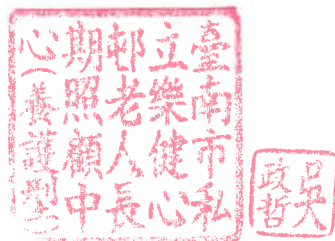 臺南市私
立樂健心
邨老人長
期照顧中
心(養護型)
吳政哲